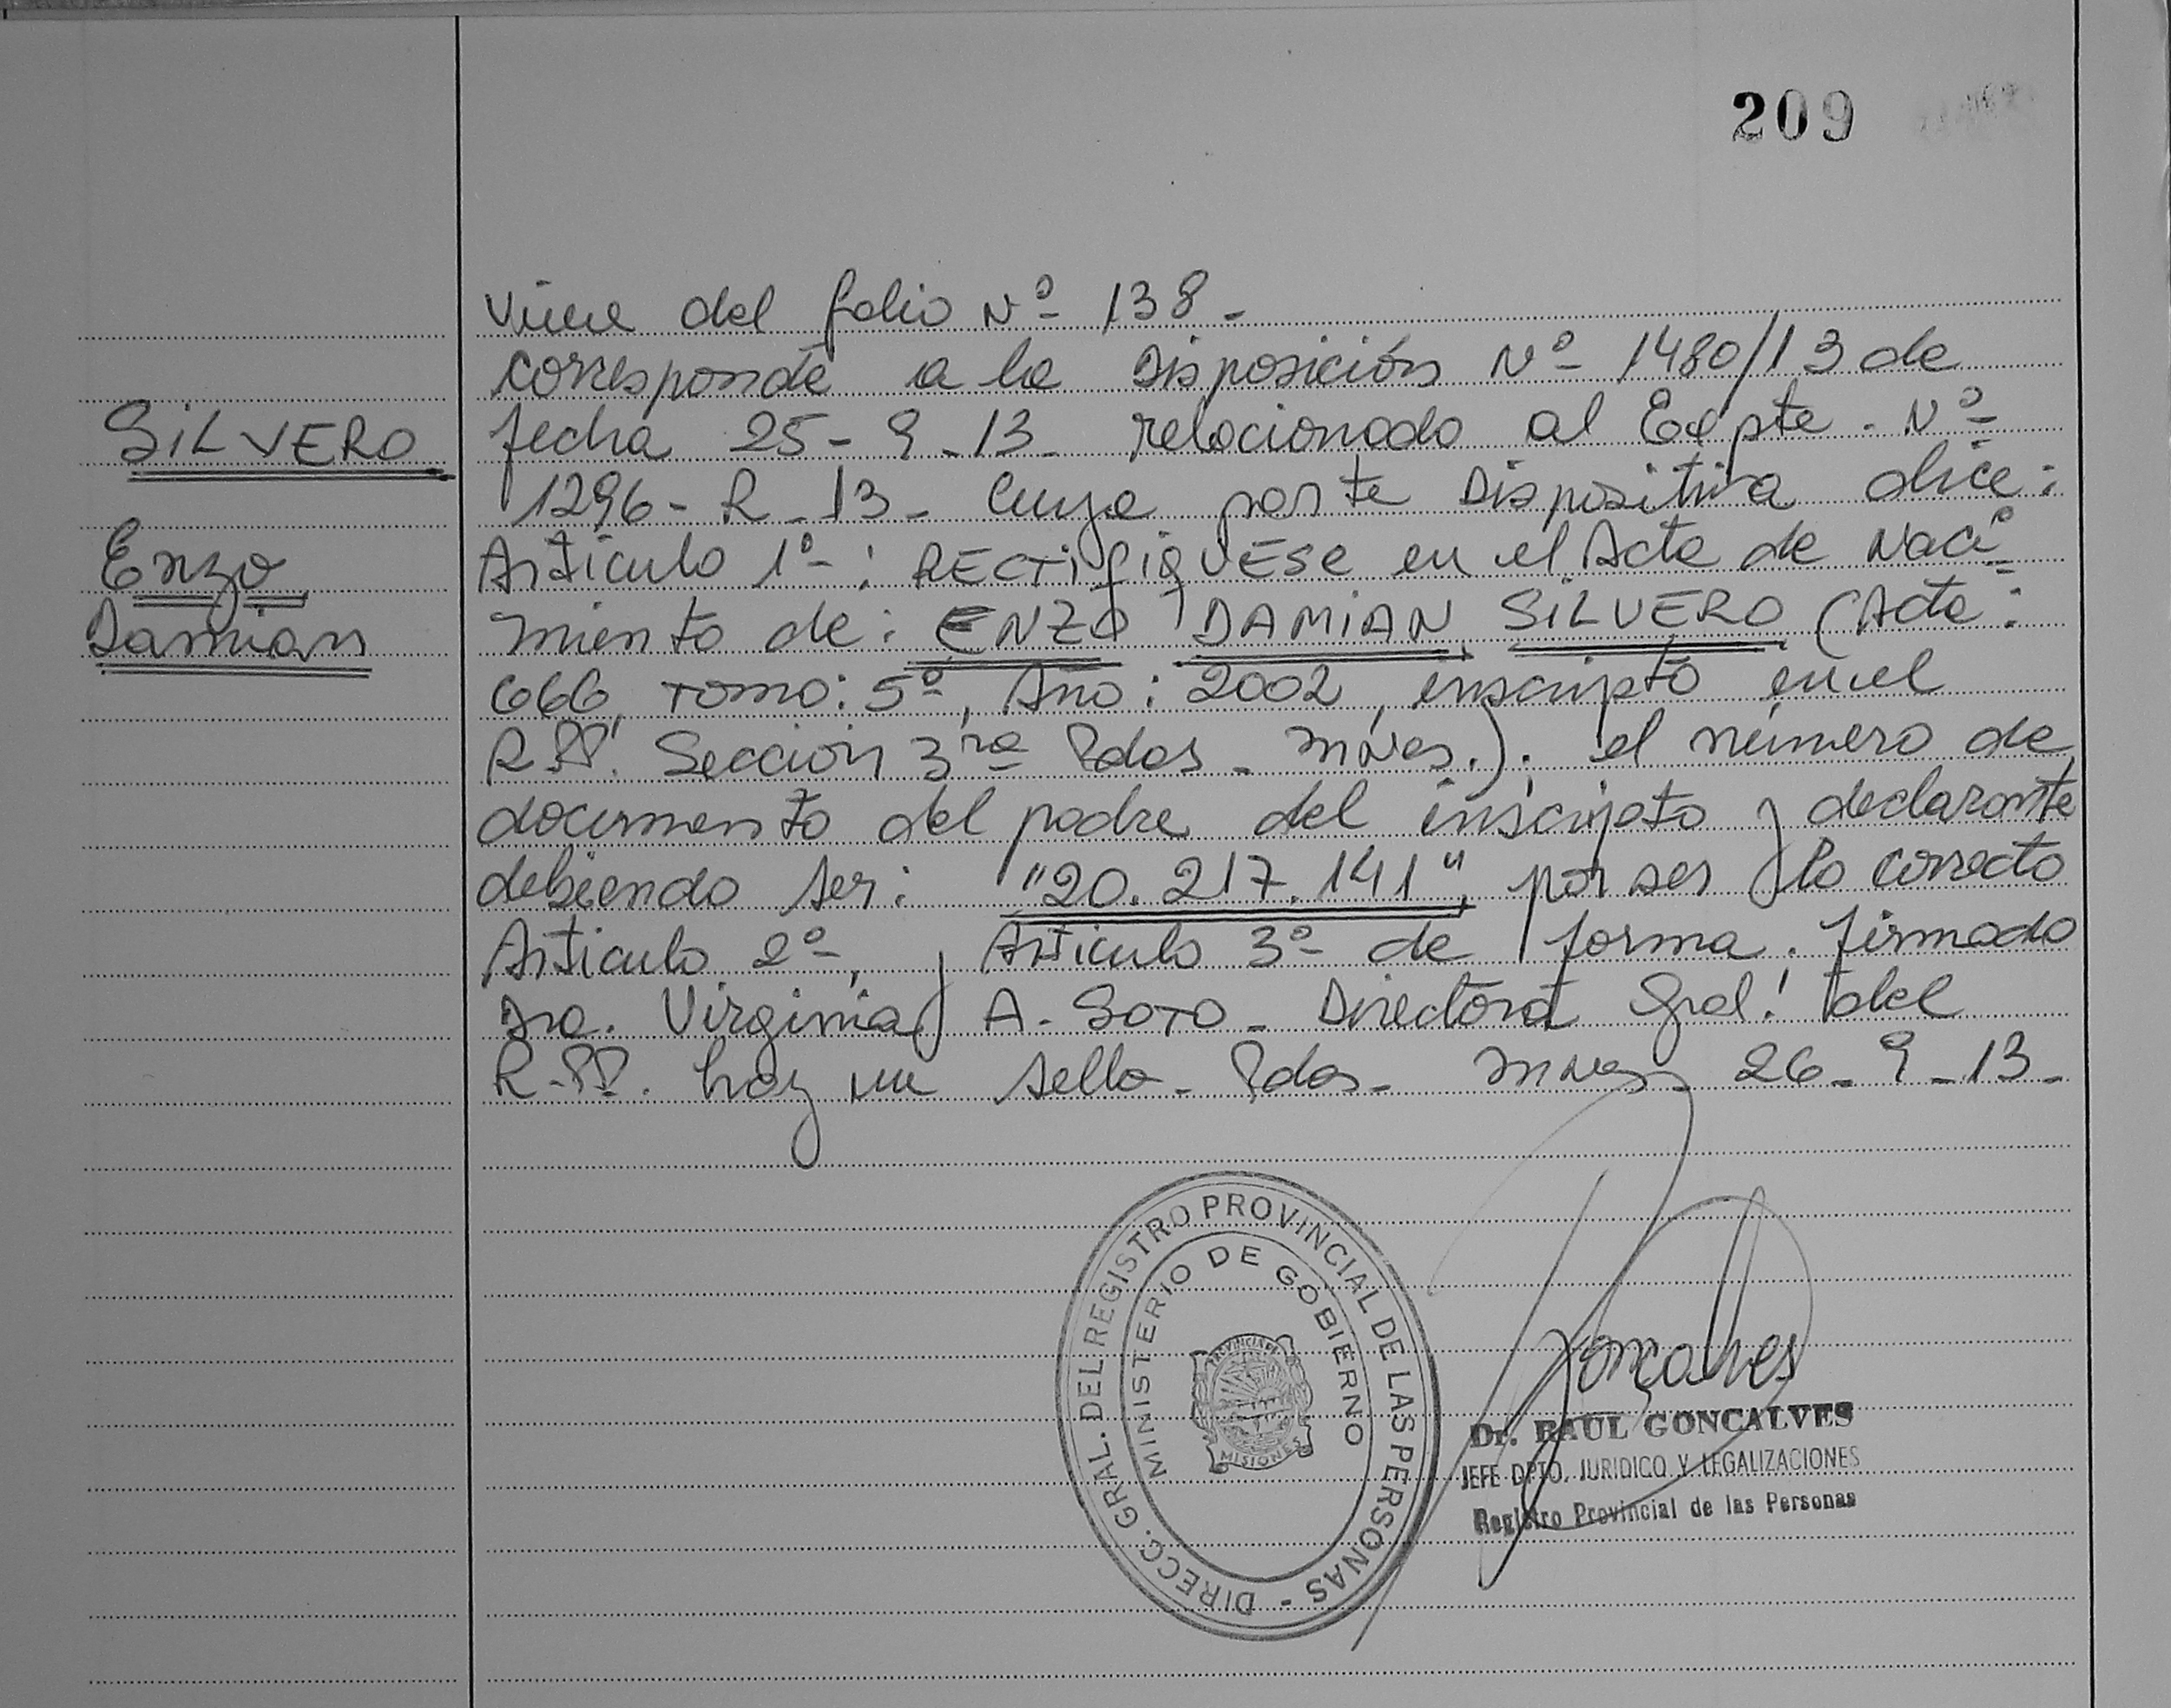 209
Viene del folio Nº 138 -
corresponde a la Disposición Nº 1480/13 de
SILVERO
fecha 25-9-13- relacionado al Expte. Nº
1296-R-13- Cuya parte Dispositiva dice:
Enzo
Articulo 1º: RECTIFIQUESE en el Acta de Naci=
Damian
miento de: ENZO DAMIAN SILVERO (Acta:
666, Tomo: 5º, Año: 2002, inscripto en el
R.PP. Sección 3ra Pdas - Mnes.). el número de
documento del padre del inscripto y declarante
debiendo ser: "20.217.141", por ser lo correcto
Articulo 2º, y Articulo 3º de forma. firmado
Dra. Virginia A. SOTO - Directora Gral. del
R.PP. hay un sello - Pdas - Mnes 26-9-13-
DIRECC. GRAL. DEL REGISTRO PROVINCIAL DE LAS PERSONAS -
MINISTERIO DE GOBIERNO
PROVINCIA DE
MISIONES
Goncalves
Dr. RAUL GONCALVES
JEFE DPTO. JURIDICO Y LEGALIZACIONES
Registro Provincial de las Personas